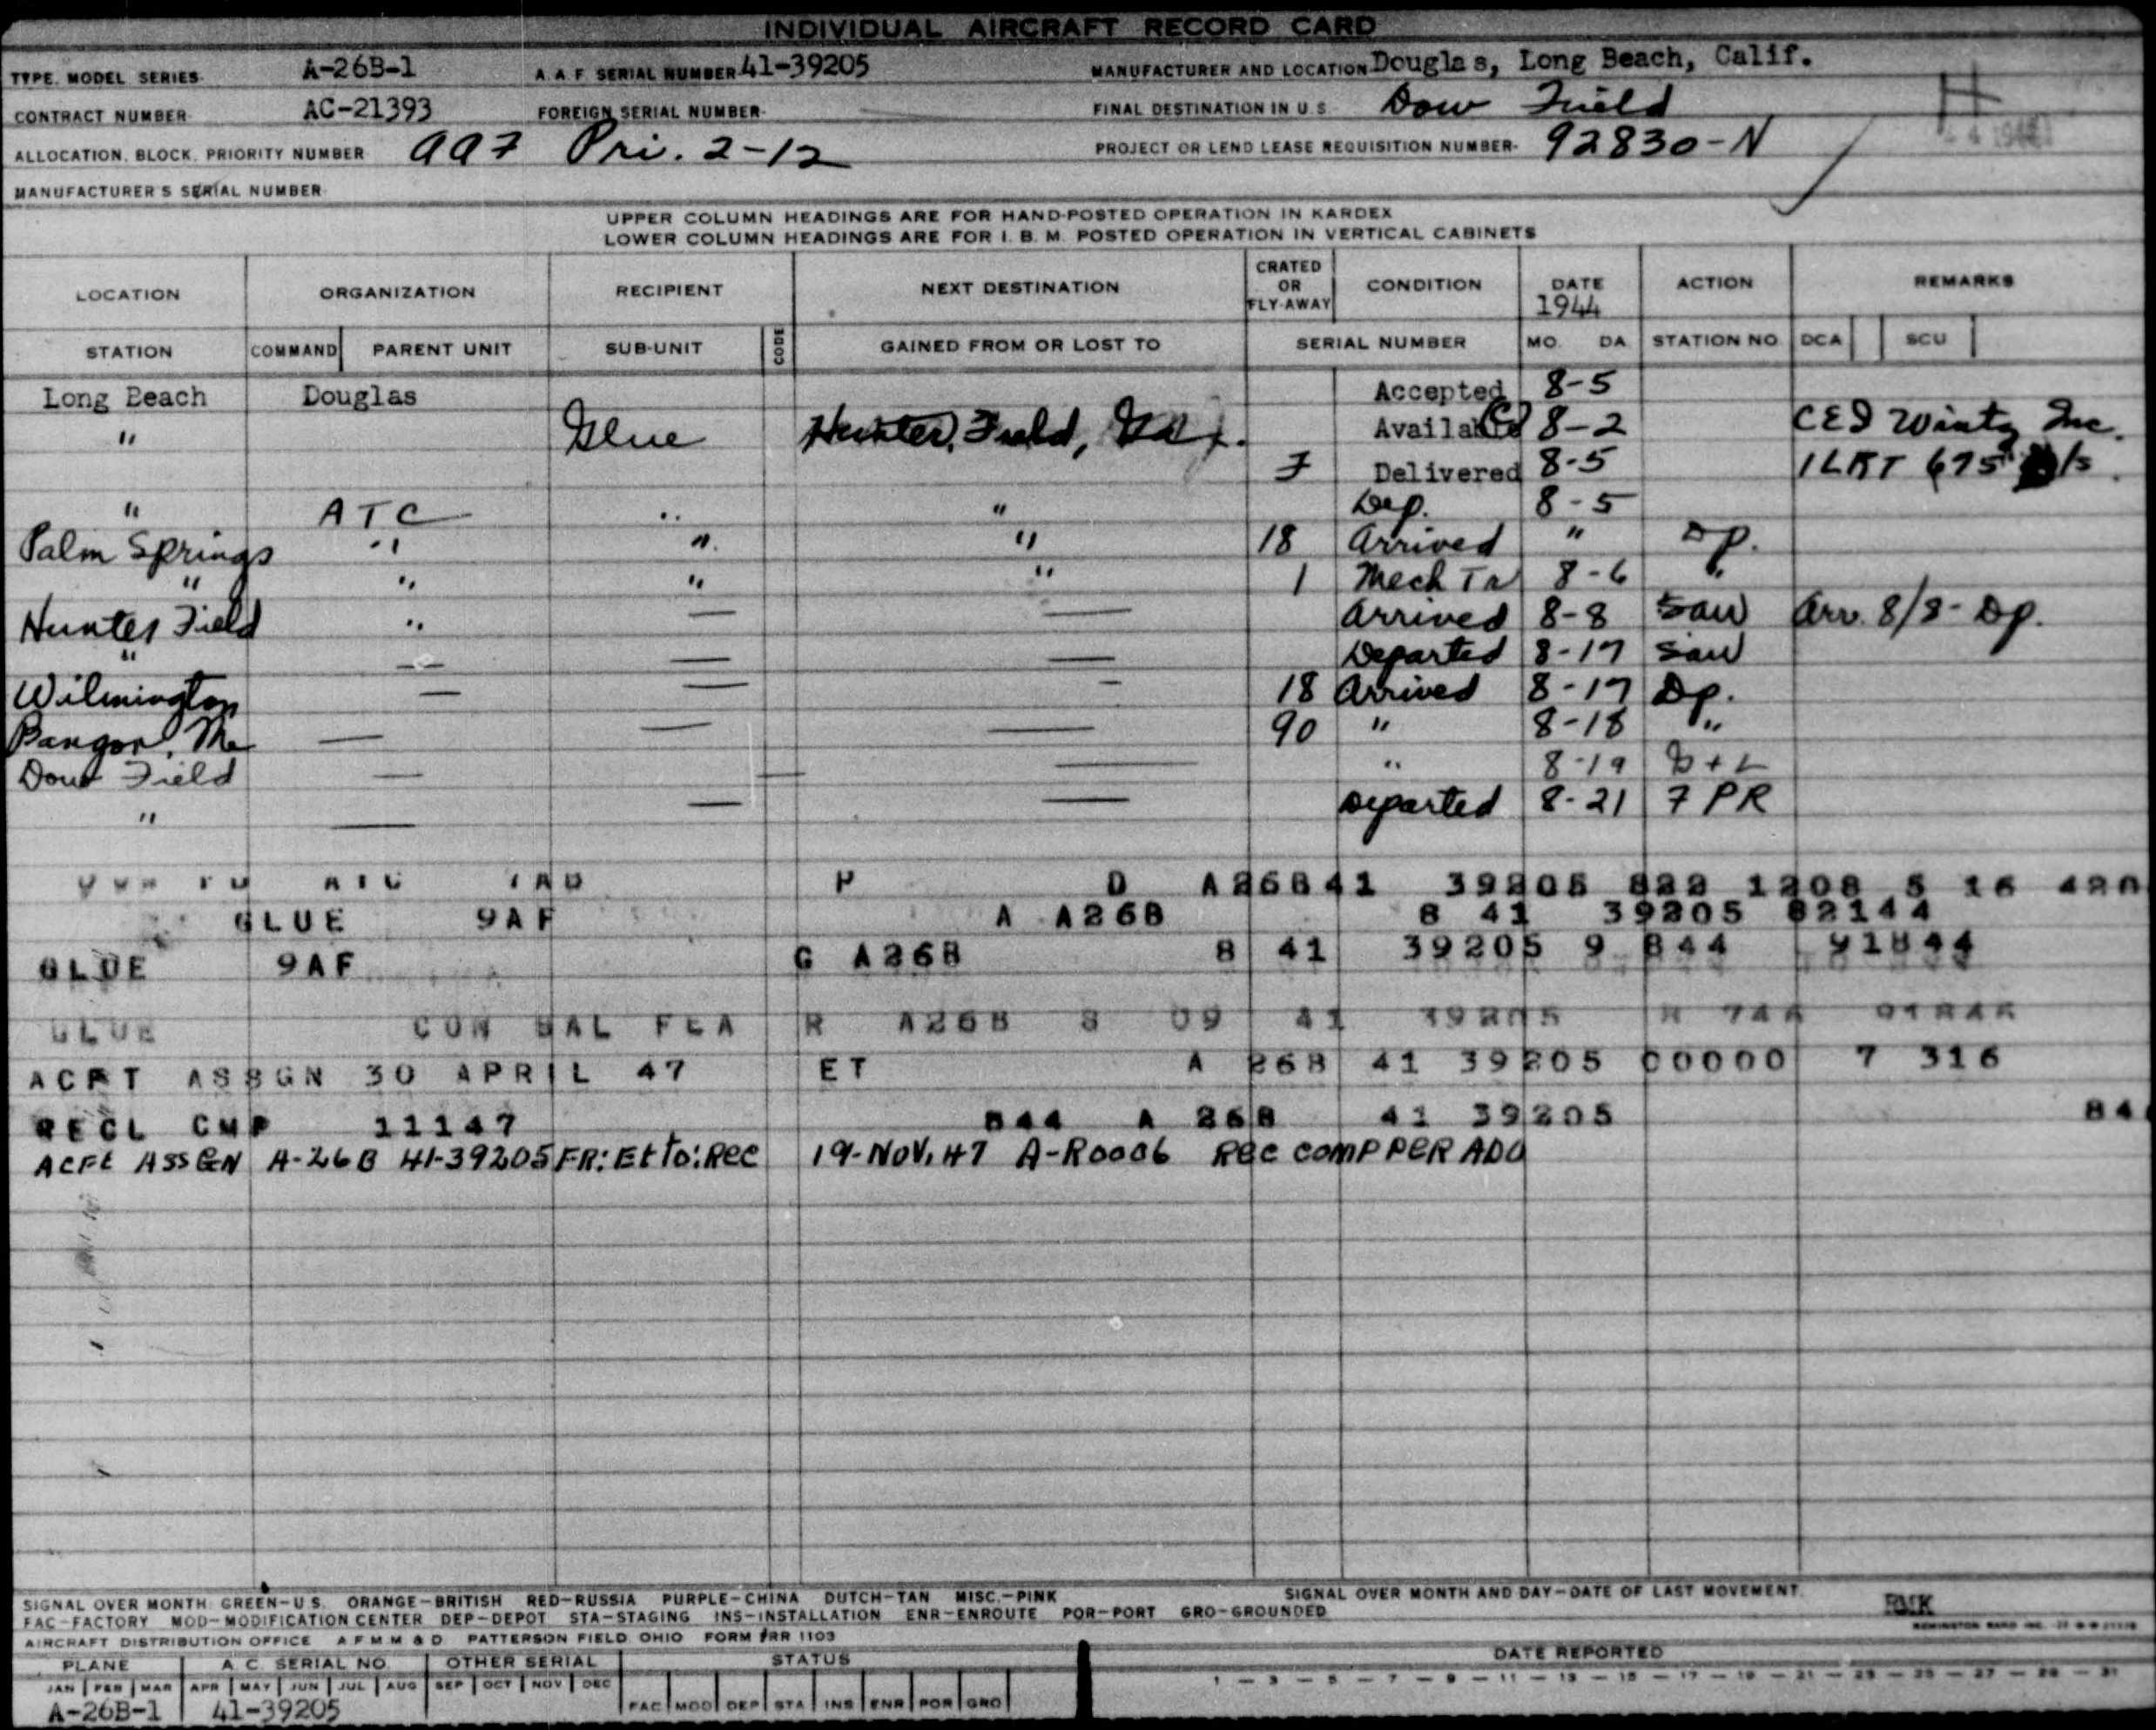 INDIVIDUAL AIRCRAFT RECORD CARD
TYPE, MODEL SERIES A-26B-1 A. A. F. SERIAL NUMBER 41-39205 MANUFACTURER AND LOCATION Douglas, Long Beach, Calif.
CONTRACT NUMBER AC-21393 FOREIGN SERIAL NUMBER FINAL DESTINATION IN U. S. Dow Field
ALLOCATION, BLOCK, PRIORITY NUMBER 997 Pri. 2-12 PROJECT OR LEND LEASE REQUISITION NUMBER 92830-N
MANUFACTURER'S SERIAL NUMBER
UPPER COLUMN HEADINGS ARE FOR HAND-POSTED OPERATION IN KARDEX
LOWER COLUMN HEADINGS ARE FOR I. B. M. POSTED OPERATION IN VERTICAL CABINETS
LOCATION ORGANIZATION RECIPIENT NEXT DESTINATION CRATED OR FLY-AWAY CONDITION DATE 1944 ACTION REMARKS
STATION COMMAND PARENT UNIT SUB-UNIT CODE GAINED FROM OR LOST TO SERIAL NUMBER MO. DA. STATION NO. DCA SCU
Long Beach Douglas Accepted 8-5
" Glue Hunter Field, Ga. Available 8-2 CED Wintz Inc.
F Delivered 8-5 1LRT 675
" ATC " " Dep. 8-5
Palm Springs " " " 18 Arrived " Dp.
" " " " 1 Mech Tr 8-6 "
Hunter Field " — — Arrived 8-8 Sau Arr. 8/8- Dp.
" — — — Departed 8-17 Sau
Wilmington — — — 18 Arrived 8-17 Dp.
Bangor, Me — — — 90 " 8-18 "
Dow Field — — — " 8-19 D+L
" — — — Departed 8-21 7 PR
ATC P D A26B41 39205 822 1208 5 16
GLUE 9AF A A26B 8 41 39205 82144
GLUE 9AF G A26B 8 41 39205 9 844 91844
GLUE CON SAL FEA R A26B 8 09 41 39205
ACFT ASSGN 30 APRIL 47 ET A 26B 41 39205 00000 7 316
RECL CMP 11147 844 A 26B 41 39205 84
ACFt ASSGN A-26B 41-39205 FR: Et to: Rec 19-NOV, 47 A-R0006 Rec comp PER ADO
SIGNAL OVER MONTH: GREEN-U.S. ORANGE-BRITISH RED-RUSSIA PURPLE-CHINA DUTCH-TAN MISC.-PINK SIGNAL OVER MONTH AND DAY-DATE OF LAST MOVEMENT.
FAC-FACTORY MOD-MODIFICATION CENTER DEP-DEPOT STA-STAGING INS-INSTALLATION ENR-ENROUTE POR-PORT GRO-GROUNDED
AIRCRAFT DISTRIBUTION OFFICE A F M M & D PATTERSON FIELD OHIO FORM RR 1103
PLANE A. C. SERIAL NO. OTHER SERIAL STATUS DATE REPORTED
JAN FEB MAR APR MAY JUN JUL AUG SEP OCT NOV DEC FAC MOD DEP STA INS ENR POR GRO 1 — 3 — 5 — 7 — 9 — 11 — 13 — 15 — 17 — 19 — 21 — 23 — 25 — 27 — 29 — 31
A-26B-1 41-39205